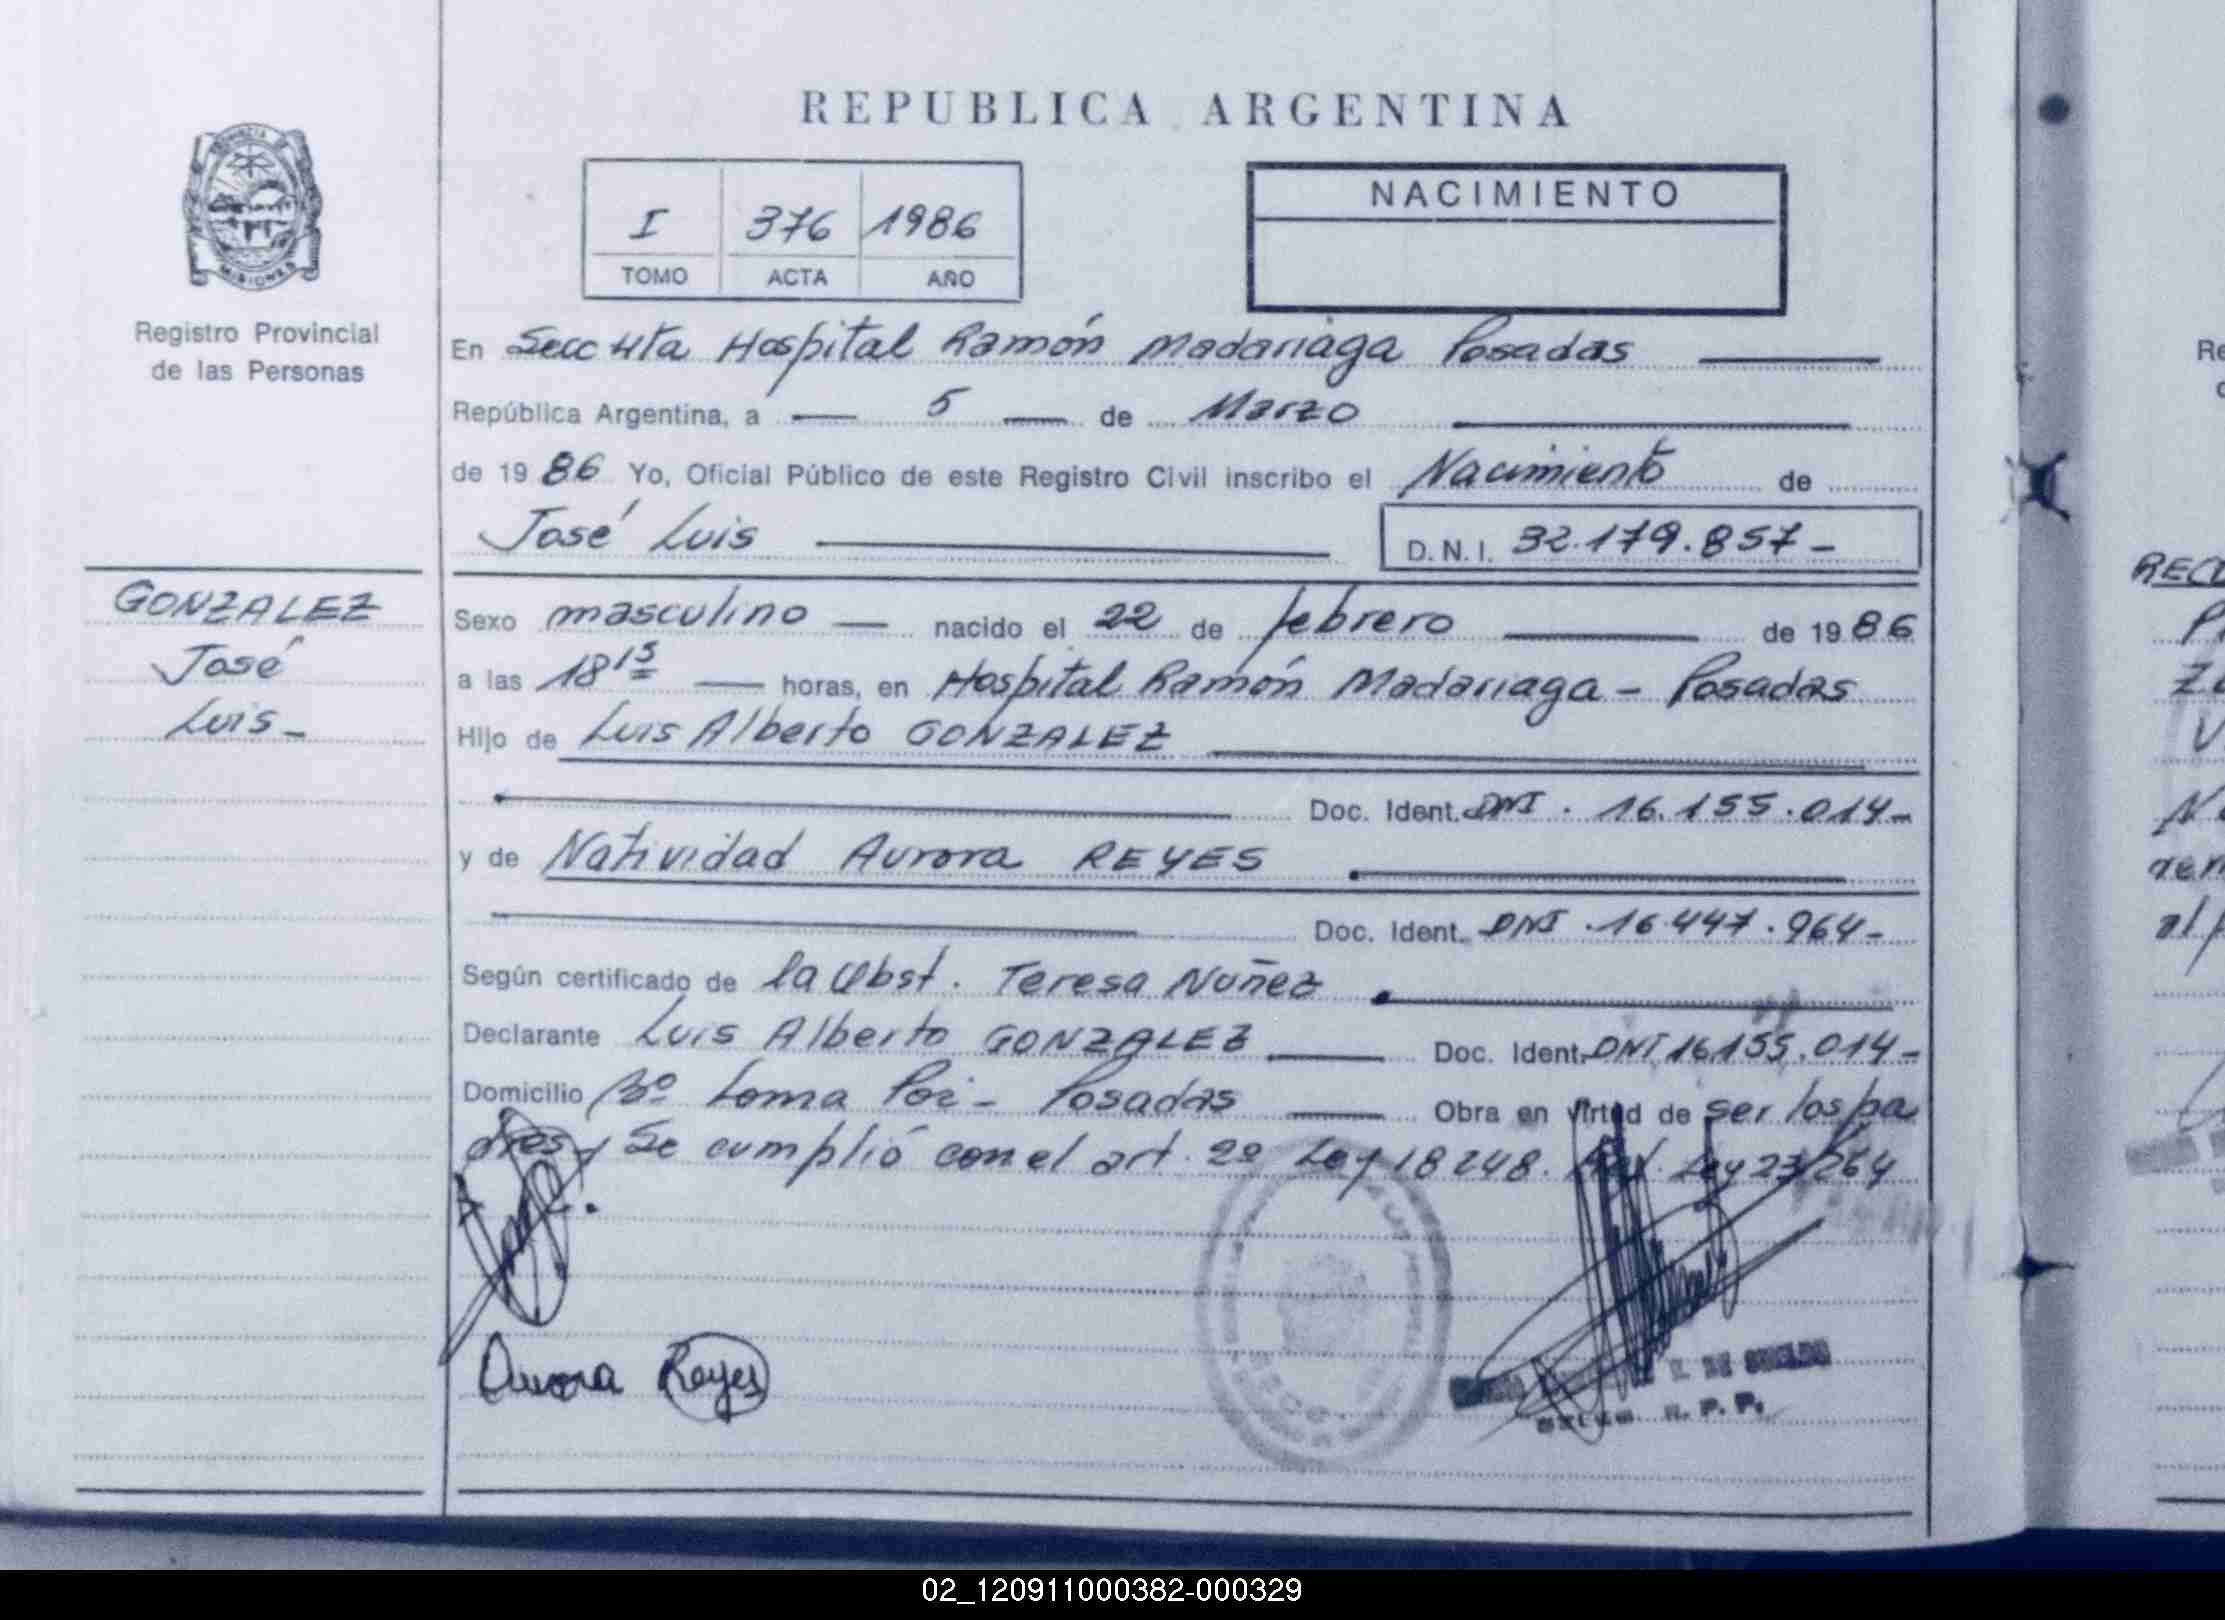 REPUBLICA ARGENTINA
PROVINCIA
MISIONES
Registro Provincial
de las Personas
I 376 1986
TOMO ACTA AÑO
NACIMIENTO
En Secc 4ta Hospital Ramón Madariaga Posadas
República Argentina, a 5 de Marzo
de 19 86 Yo, Oficial Público de este Registro Civil inscribo el Nacimiento de
José Luis D. N. I. 32.179.857-
GONZALEZ
José
Luis-
Sexo masculino nacido el 22 de febrero de 19 86
a las 18 15 horas, en Hospital Ramón Madariaga - Posadas
Hijo de Luis Alberto GONZALEZ
Doc. Ident. DNI . 16.155.014-
y de Natividad Aurora REYES
Doc. Ident. DNI .16.447.964-
Según certificado de la Obst. Teresa Nuñez
Declarante Luis Alberto GONZALEZ Doc. Ident. DNI 16.155.014-
Domicilio Bº Loma Poi - Posadas Obra en virtud de ser los pa
dres/ Se cumplió con el art. 2º Ley 18248. Ley 23264
Aurora Reyes
R. P. P.
02_120911000382-000329